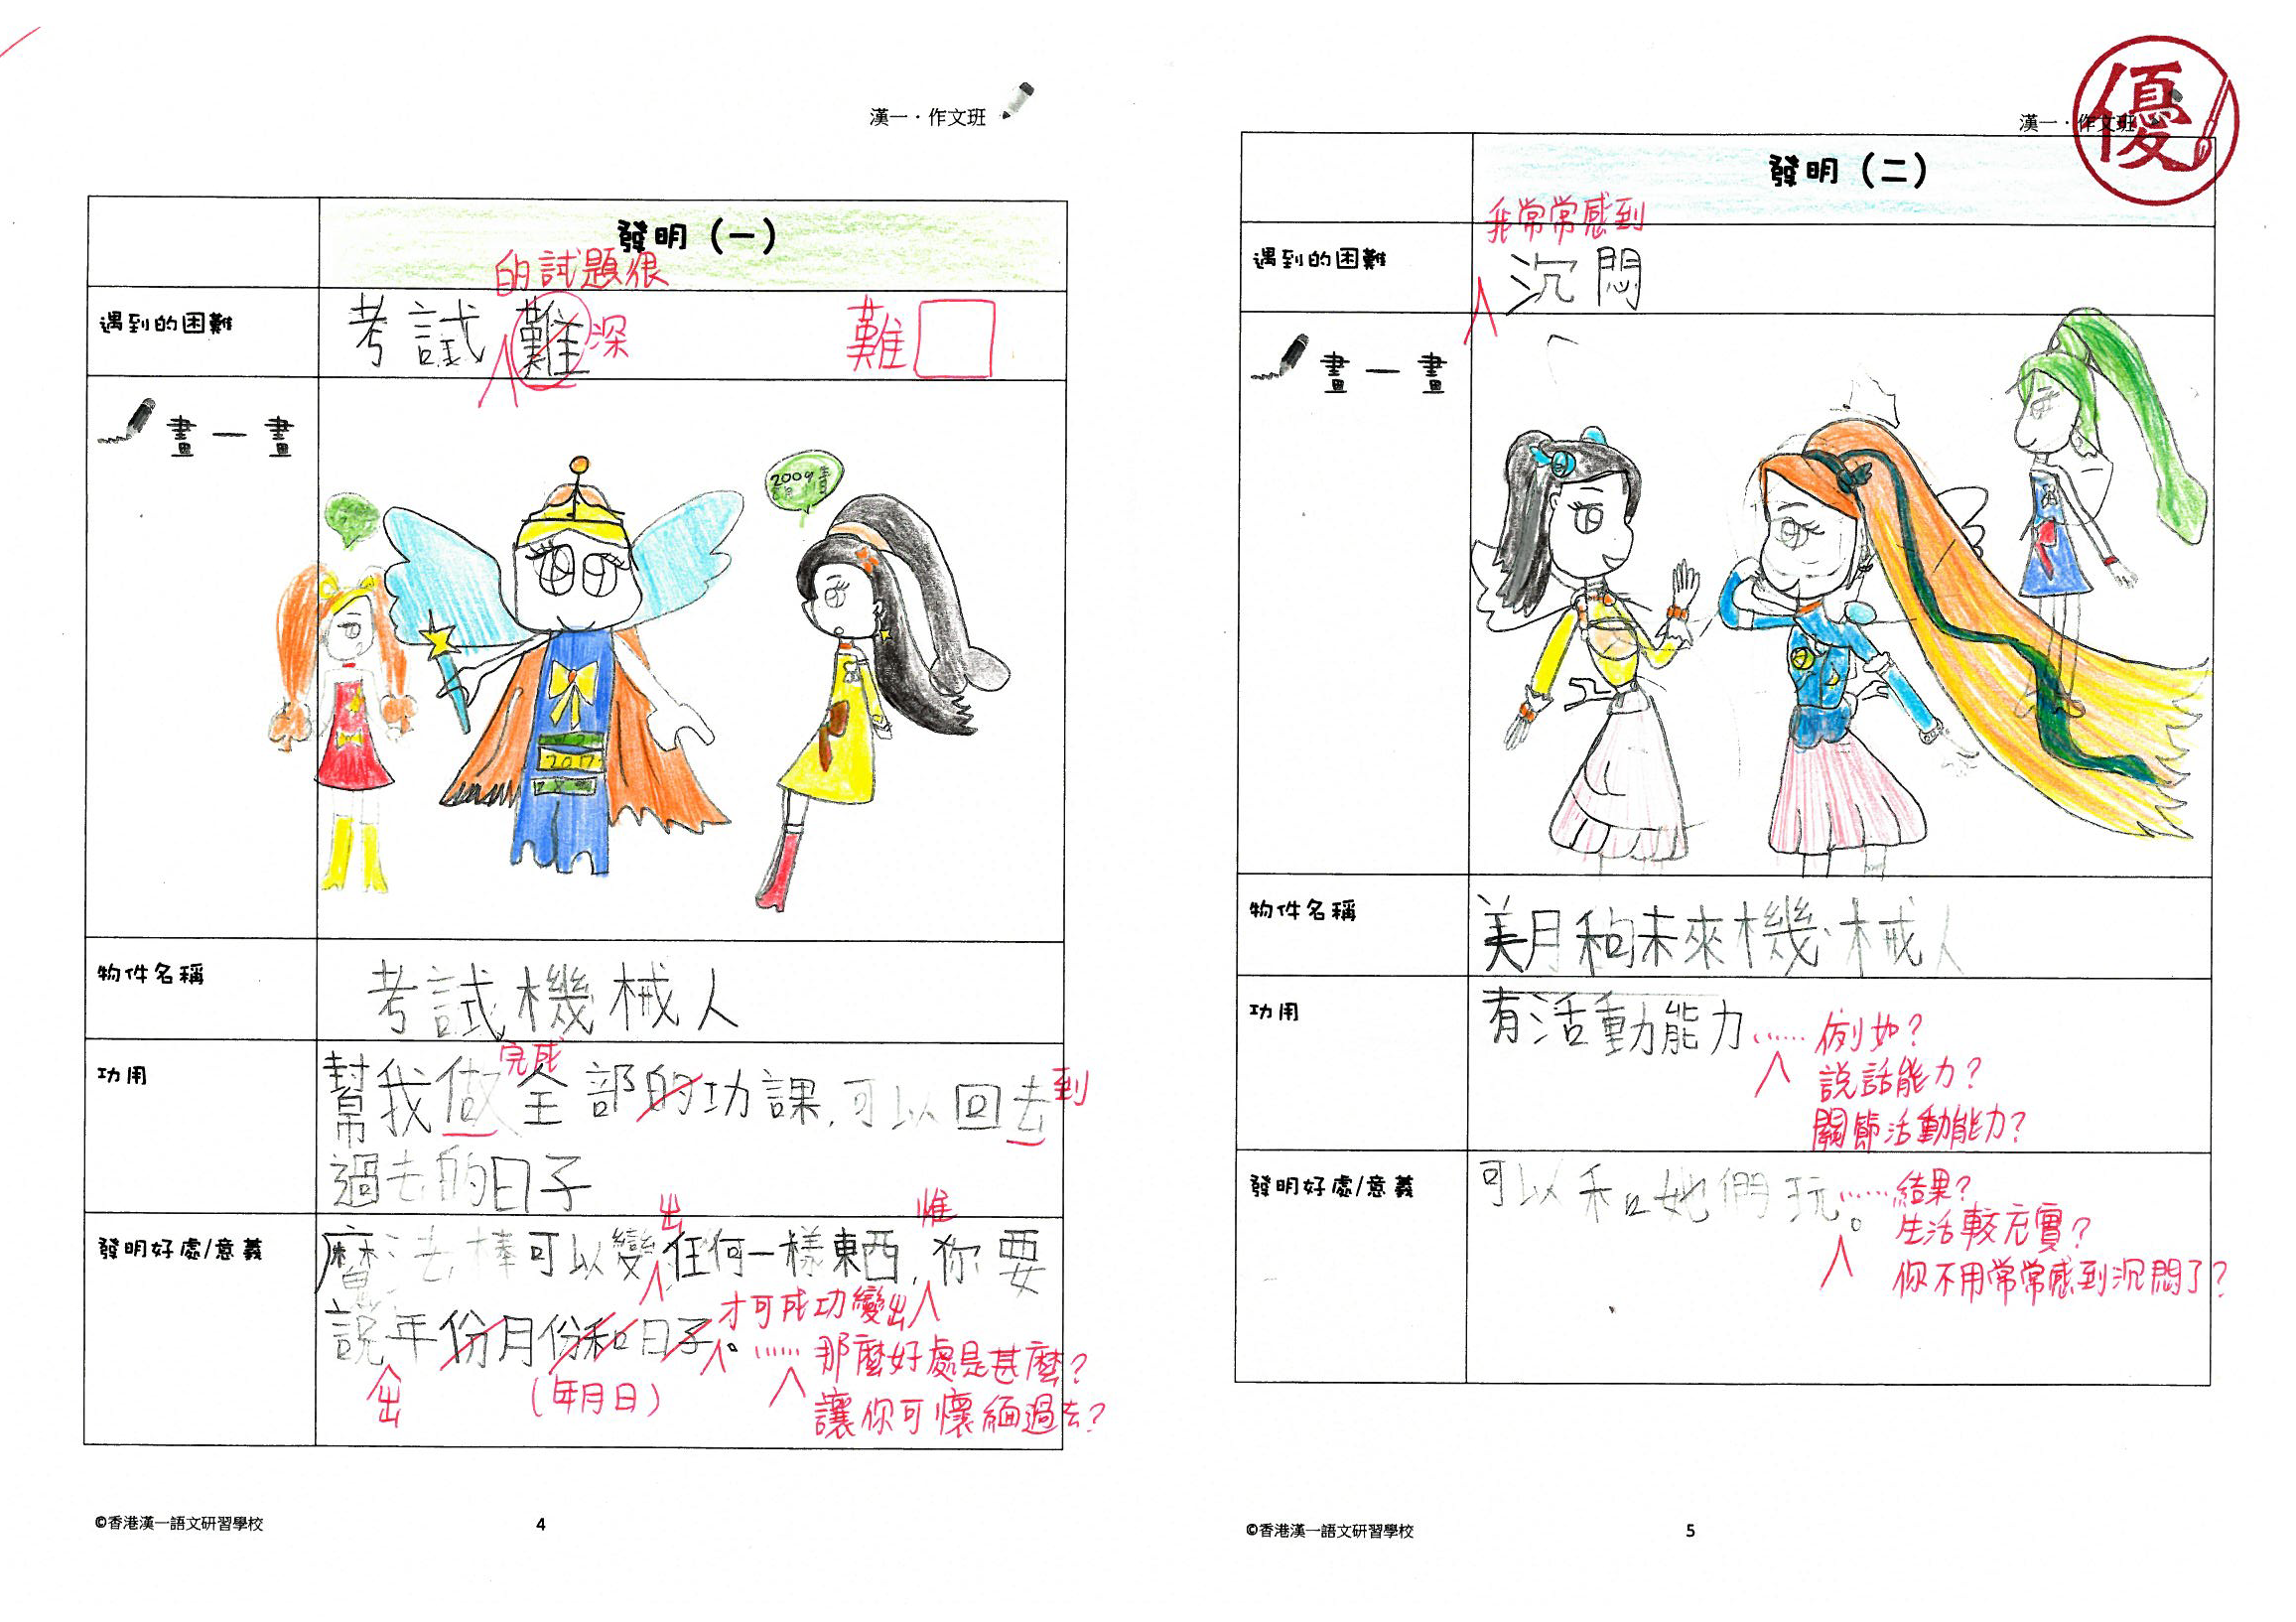 漢一．作文班
發明（一）
的試題很
遇到的困難
考試難深
難
畫一畫
2009
2017
物件名稱
考試機械人
功用
完成
幫我做全部的功課，可以回去到
過去的日子
出
惟
發明好處/意義
魔法棒可以變任何一樣東西，你要
才可成功變出
說年份月份和日子。……那麼好處是甚麼？
出
（年月日）
讓你可懷緬過去？
©香港漢一語文研習學校
4
優
漢一．作文班
發明（二）
我常常感到
遇到的困難
沉悶
畫一畫
物件名稱
美月和未來機械人
功用
有活動能力……例如？
說話能力？
關節活動能力？
發明好處/意義
可以和她們玩……。結果？
生活較充實？
你不用常常感到沉悶了？
©香港漢一語文研習學校
5